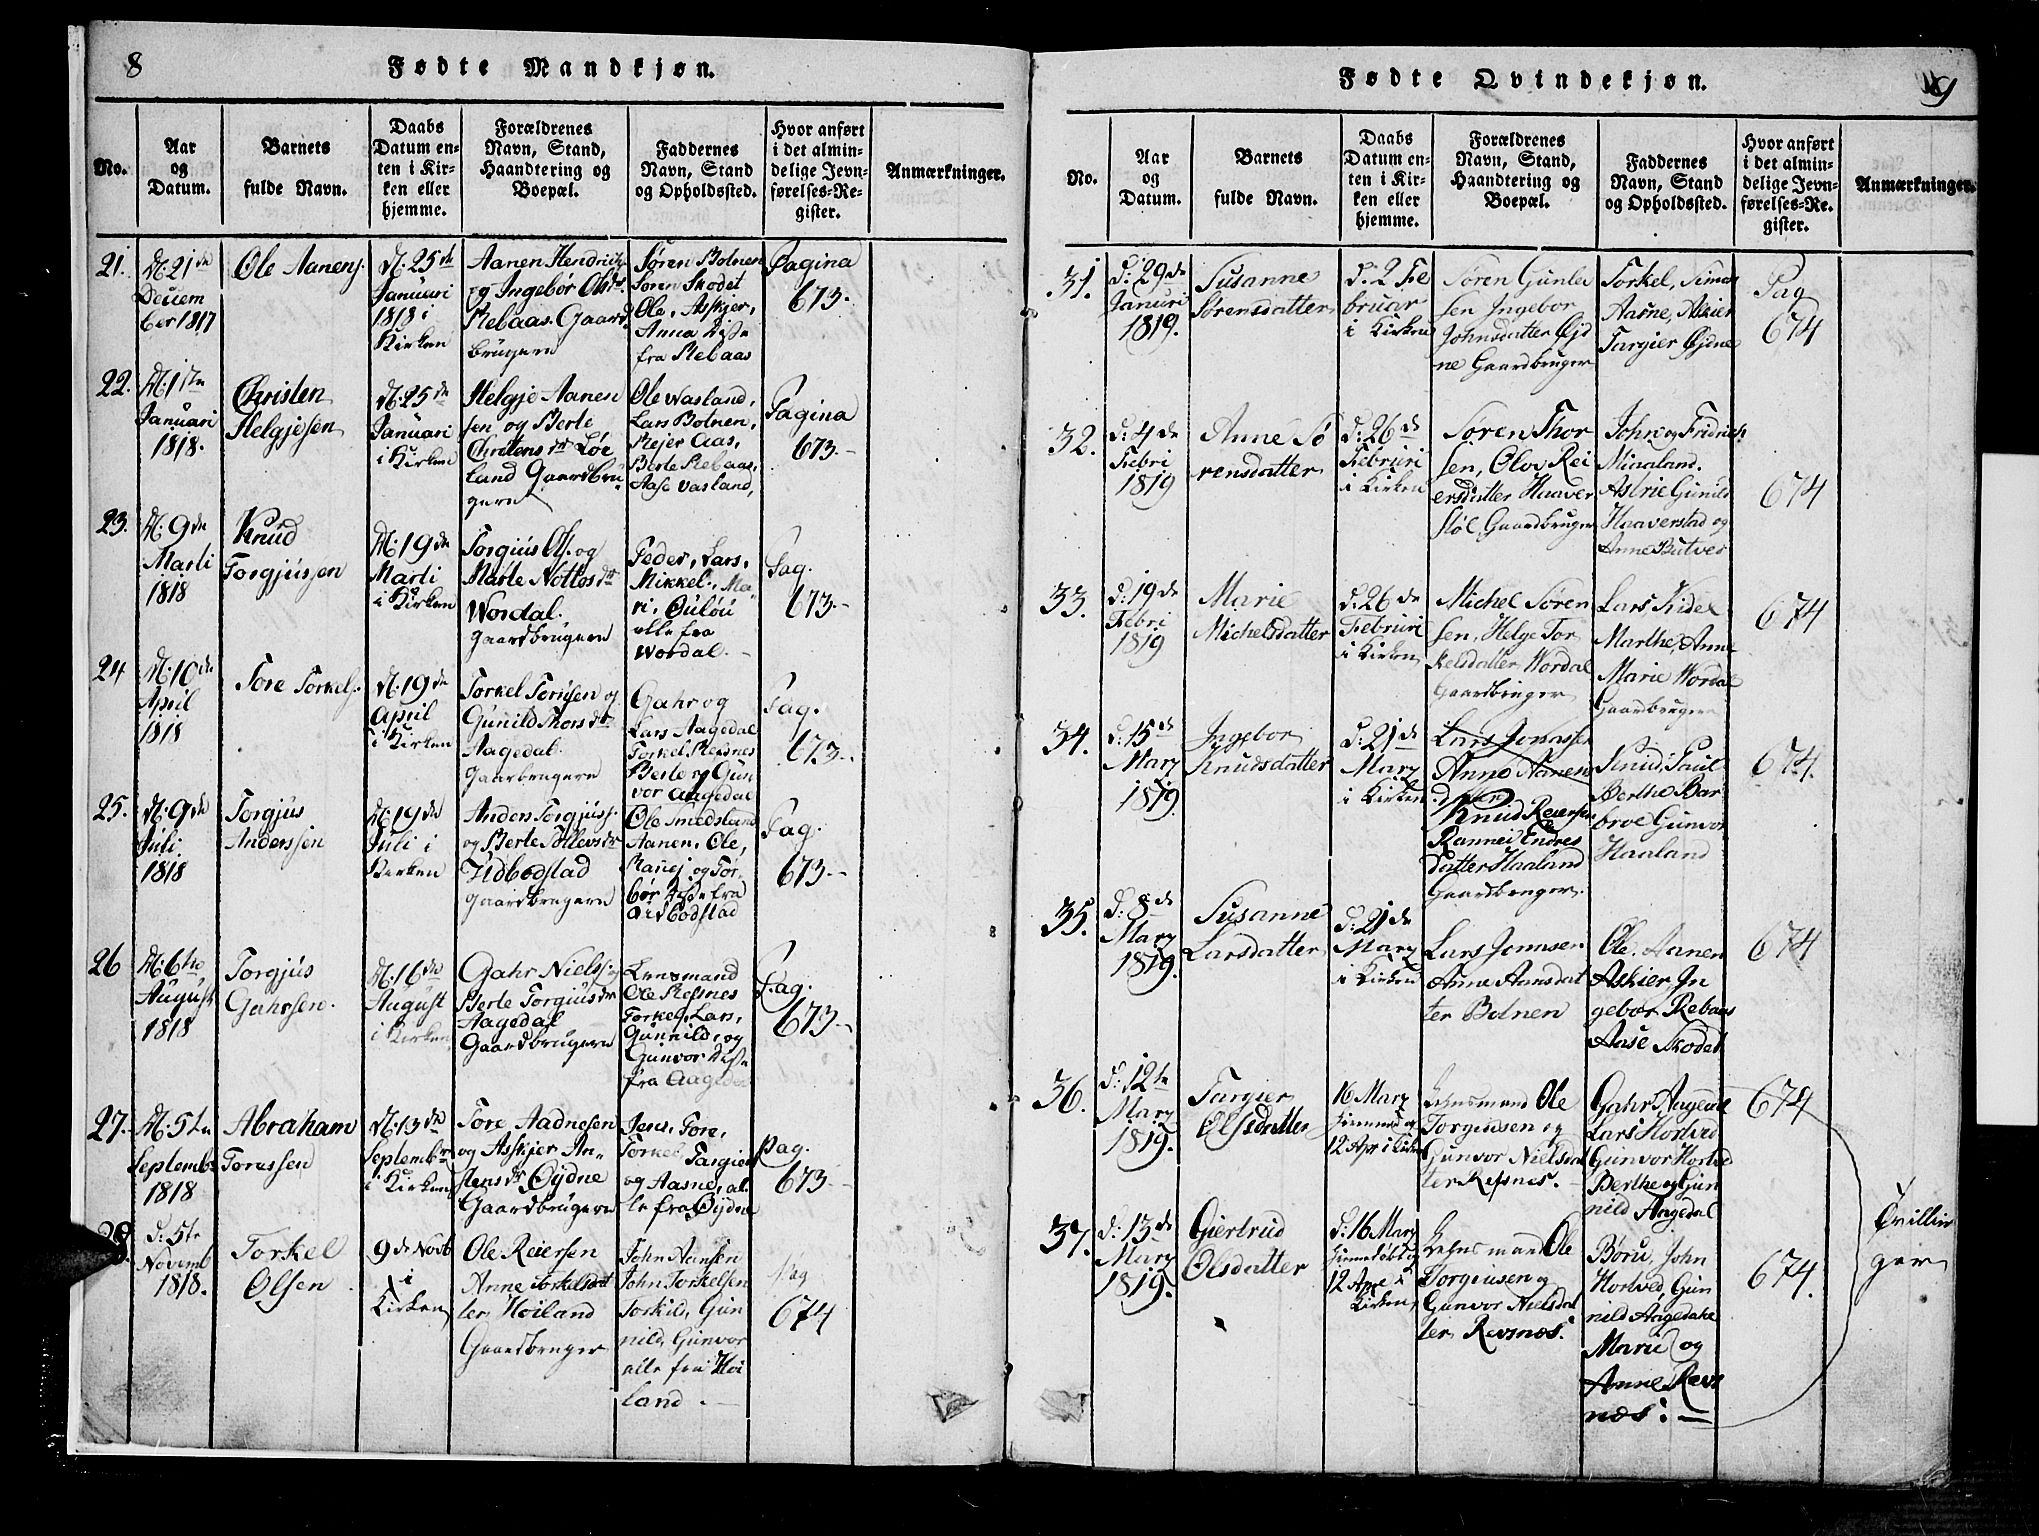 8
Fødte Mandkjøn.
No.
Aar
og
Datum.
Barnets
fulde Navn.
Daabs
Datum en-
ten i Kir-
ken eller
hjemme.
Forældrenes
Navn, Stand,
Haandtering og
Boepæl.
Faddernes
Navn, Stand
og Opholdssted.
Hvor anført
i det almin-
delige Jevn-
førelses-Re-
gister.
Anmærkninger.
21.
D. 21de
Decem
ber 1817
Ole Aanens.
D. 25de
Januari
1818 i
Kirken
Aanen Hendriks
og Ingebør Olsdr
Rebaas. Gaard
brugere
Søren Botnen
Søren Skodet
Ole, Asskjer,
Anna
fra Rebaas
Pagina
673.
22.
D. 1ste
Januari
1818.
Christen
Helgjesen
D. 25de
Januari
i Kirken
Helgje Aanen
sen og Berte
Christensdr Løe
land Gaardbru
gere
Ole Vasland,
Lars Botnen,
Rejer Aas,
Berte Rebaas,
Aase Vasland,
Pagina
673.
23.
D. 9de
Marti
1818
Knud
Torgjussen
D. 19de
Marti
i Kirken
Torgius Ols. og
Marte Nottosdr
Wordal.
Gaardbrugere
Peder, Lars,
Mikkel, Ma
ri,
alle fra
Wordal.
Pag.
673.
24
D. 10de
April
1818
Tore Torkels.
D. 19de
April
i Kirken
Torkel Torisen og
Gunild Thorsdr
Aagedal.
Gaarbrugere
Gahr og
Lars Aagedal
Torkel Refsnes
Berte og Gun
vor Aagedal
Pag.
673.
25.
D. 9de
Juli
1818
Torgjus
Anderssen
D. 19de
Juli i
Kirken
Anders Torgjuss.
og Berte Tollevsdr
Udbodstad
Gaardbrugere
Ole Smedsland
Aanen, Ole,
Ranej og Tor
bør fra
Udbodstad
Pag.
673.
26
D. 6te
August
1818
Torgjus
Gahrsen.
D. 16de
August
i Kirken
Gahr Nielss. og
Berte Torgiusdr
Aagedal
Gaardbrugere
Lensmand
Ole Refsnes
Torkel, Lars,
Gunnild, og
Gunvor
fra Aagedal
Pag.
673.
27.
D. 5te
Septembr
1818
Abraham
Toressen
D. 13de
Septembr
i Kirken
Tore Aadnesen
og Asskjer An
stensdr Øydne
Gaardbrugere
Jens, Tore,
Torkel Targier
og Aasne, al
le fra Øydne
Pag.
673
28.
d: 5te
Novemb
1818.
Torkel
Olsen
9de Novb
i
Kirken
Ole Reiersen
Anne Torkelsdat
ter Høiland
Gaardbruger
John Aansen
John Torkelsen
Torkild, Gun
nild, Gunvor
alle fra Høi
land.
Pag
674
9
Fødte Qvindekjøn.
No.
Aar
og
Datum.
Barnets
fulde Navn.
Daabs
Datum en-
ten i Kir-
ken eller
hjemme.
Forældrenes
Navn, Stand,
Haandtering og
Boepæl.
Faddernes
Navn, Stand
og Opholdssted.
Hvor anført
i det almin-
delige Jevn-
førelses-Re-
gister.
Anmærkninger.
31.
d: 29de
Januri
1819.
Susanne
Sørensdatter
d. 2 Fe
bruar
i Kirken
Søren Gunle
sen Ingebor
Johnsdatter Øjd
ne Gaardbruger
Torkel, Simon
Aasne, Askier
Targier Øjdne
Pag
674
32.
d: 4de
Febri
1819
Anne Sø
rensdatter
d: 26de
Februri
i Kirken
Søren Thor
sen, Olve Rei
ersdatter Haaver
støl Gaardbruger
John og Fridrich
Miaaland.
Astrie Gunild
Haaverstad og
Anne Butver
674
33.
d: 19de
Febri
1819
Marie
Michelsdatter
d: 26de
Februri
i Kirken
Michel Søren
sen, Helge Tor
kelsdatter Wordal
Gaardbruger
Lars Kidel
Marthe, Anne
Marie Wordal
Gaardbruger
674
34.
d: 15de
Marz
1819
Ingebor
Knudsdatter
d: 21de
Marz
i Kirken
Lars Jonassen
Anne Aanens
datter
Knud Reiersen
Rannei Endres
datter Haaland
Gaardbruger.
Knud, Paul
Berthe Bar
broe Gunvor
Haaland
674.
35.
d: 8de
Marz
1819.
Susanne
Larsdatter
d: 21de
Marz
i Kirken
Lars Jonnsen
Anne Aansdat
ter Botnen
Ole. Aanen
Askier In
gebor Rebaas
Aase Skodet
674
36.
d: 12te
Marz
1819.
Targier
Olsdatter
16 Marz
hiemme og
12 Apr i Kirken
Lehnsmand Ole
Torgiussen og
Gunvor Nielsdat
ter Refsnes.
Gahr Aagedal
Lars Hortved
Gunvor Hortved
Berthe og Gun
nild Aagedal
674
37.
d: 13de
Marz
1819.
Giertrud
Olsdatter
d: 16 Marz
hiemmedøbt og
12 Apr i
Kirken
Lehnsmand Ole
Torgiussen og
Gunvor Nielsdat
ter Revsnæs.
Børu, John
Hortved, Gun
nild Aagedal
Marie og
Anne Revs
næs.
674.
Tvillin
ger